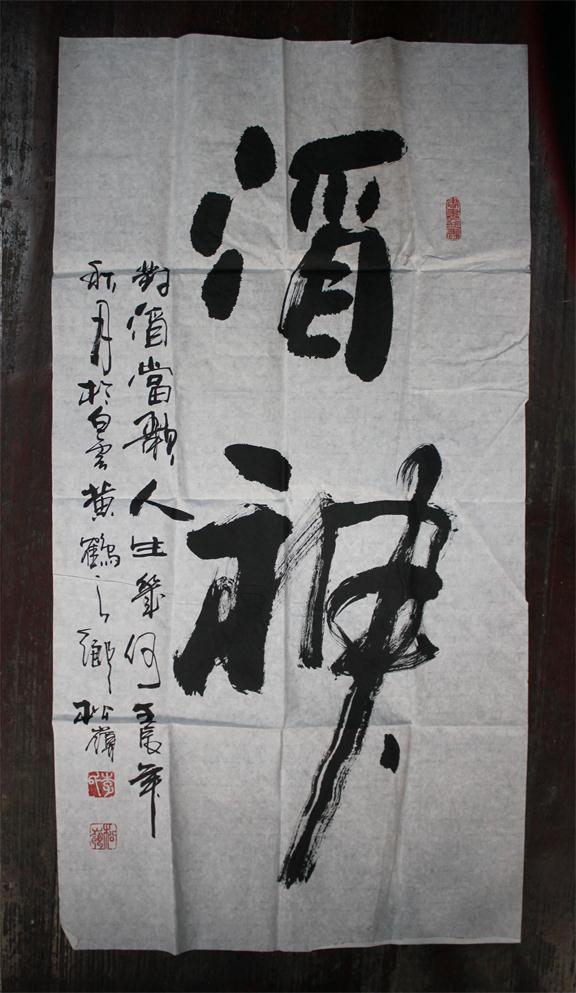 酒神
對酒當歌人生幾何壬辰年
秋月於白雲黃鶴之鄉松嶺